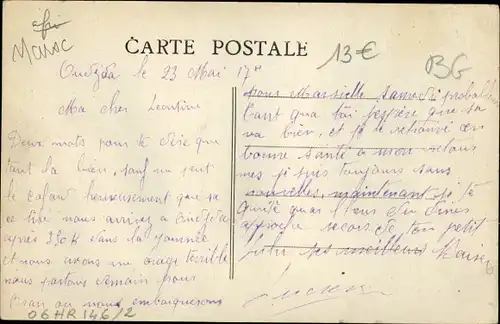 afri
Maroc
CARTE POSTALE
13€
BG
Oudjda le 23 Mai 17
Ma cher Leontine
Deux mots pour te dire que
tant la bien, sauf un peut
le cafard heureusement que sa
ce tire nous arrivez a Oudjda
apres 230K dans la journée
et nous avons eu orage terrible
nous partons demain pour
Oran ou nous embarquerons
06HR146/2
pour Marseille samedi probable
tant qua toi j'espère que sa
va bien, et je te retrouve en
bonne santé a mon retour
mes je suis toujours sans
nouvelles, maintenant je te
quitte
approche recois de ton petit
ses meilleurs Baiser
Lucien